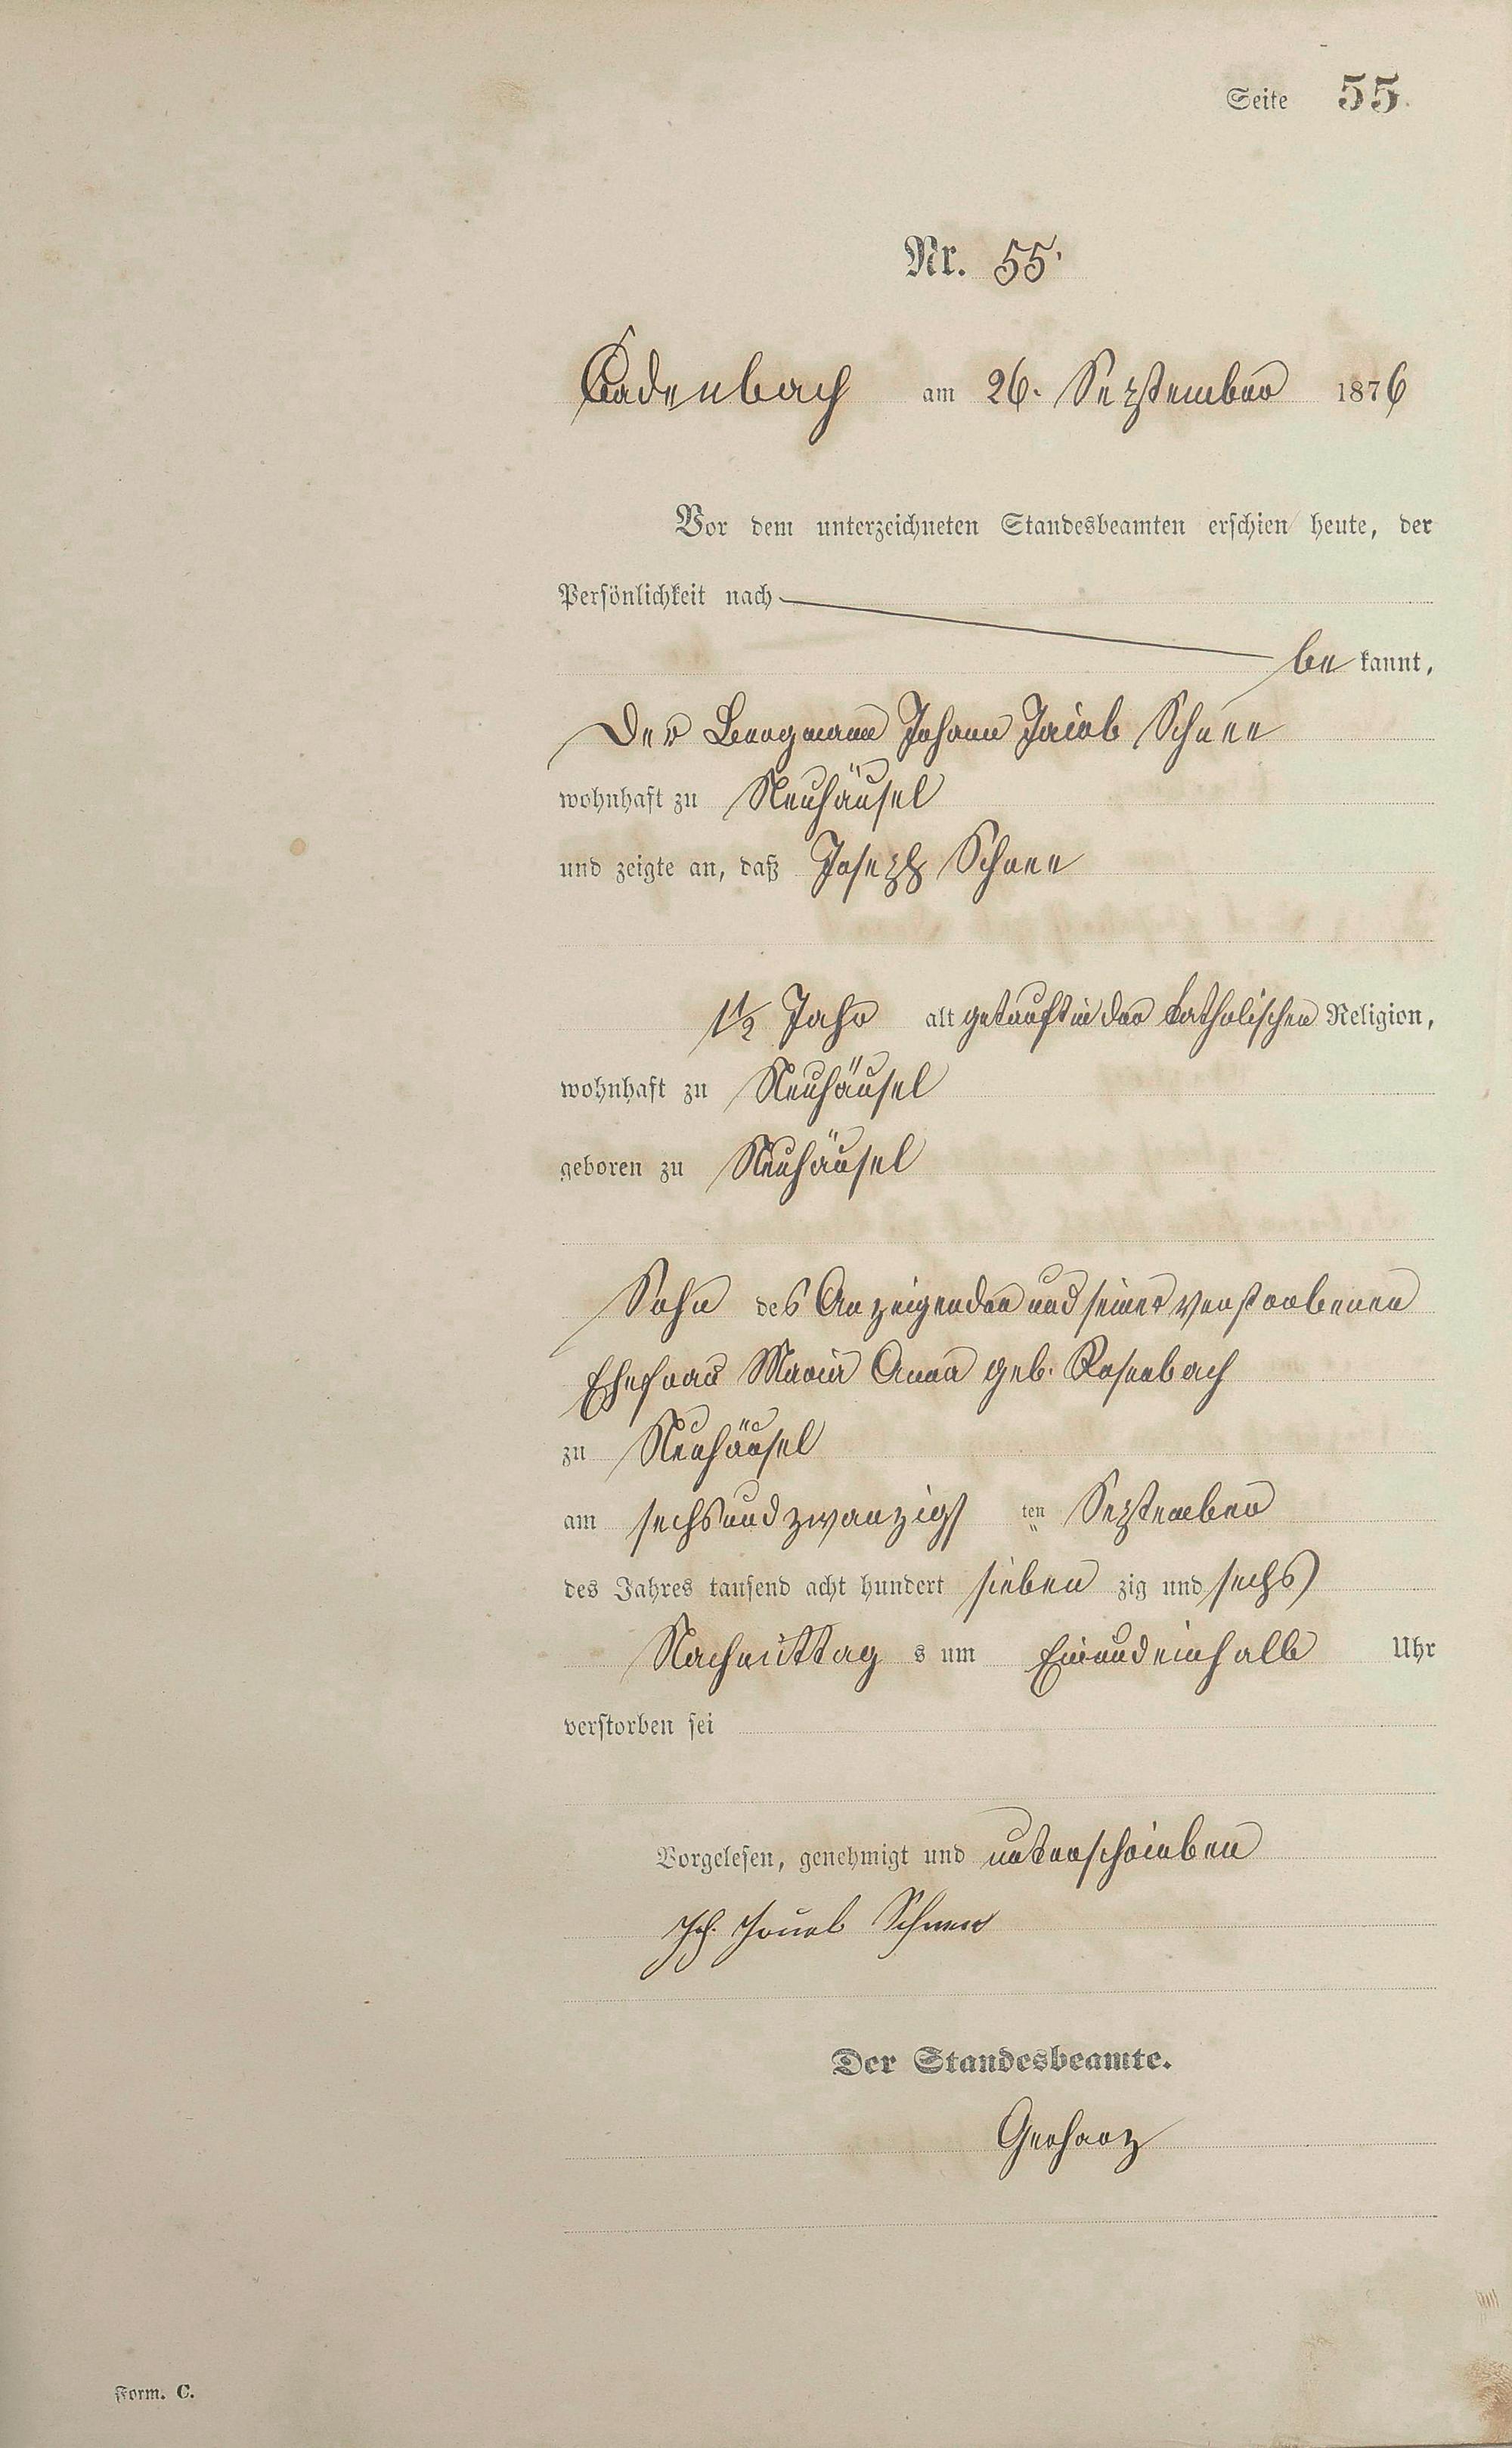 Seite 55.
Nr. 55.
Cadenbach am 26. September 1876
Vor dem unterzeichneten Standesbeamten erschien heute, der
Persönlichkeit nach
bekannt,
Der Bergmann Johann Jacob Schnee
wohnhaft zu Neuhäusel
und zeigte an, daß Joseph Schnee
1½ Jahr alt getauft in der katholischen Religion,
wohnhaft zu Neuhäusel
geboren zu Neuhäusel
Sohn des Anzeigenden und seiner verstorbenen
Ehefrau Maria Anna geb. Rosenbach
zu Neuhäusel
am sechsundzwanzigsten September
des Jahres tausend acht hundert siebenzig und sechs
Nachmittags um Einundeinhalb Uhr
verstorben sei
Vorgelesen, genehmigt und unterschrieben
Joh. Jacob Schnee
Der Standesbeamte.
Gerharz
Form. C.